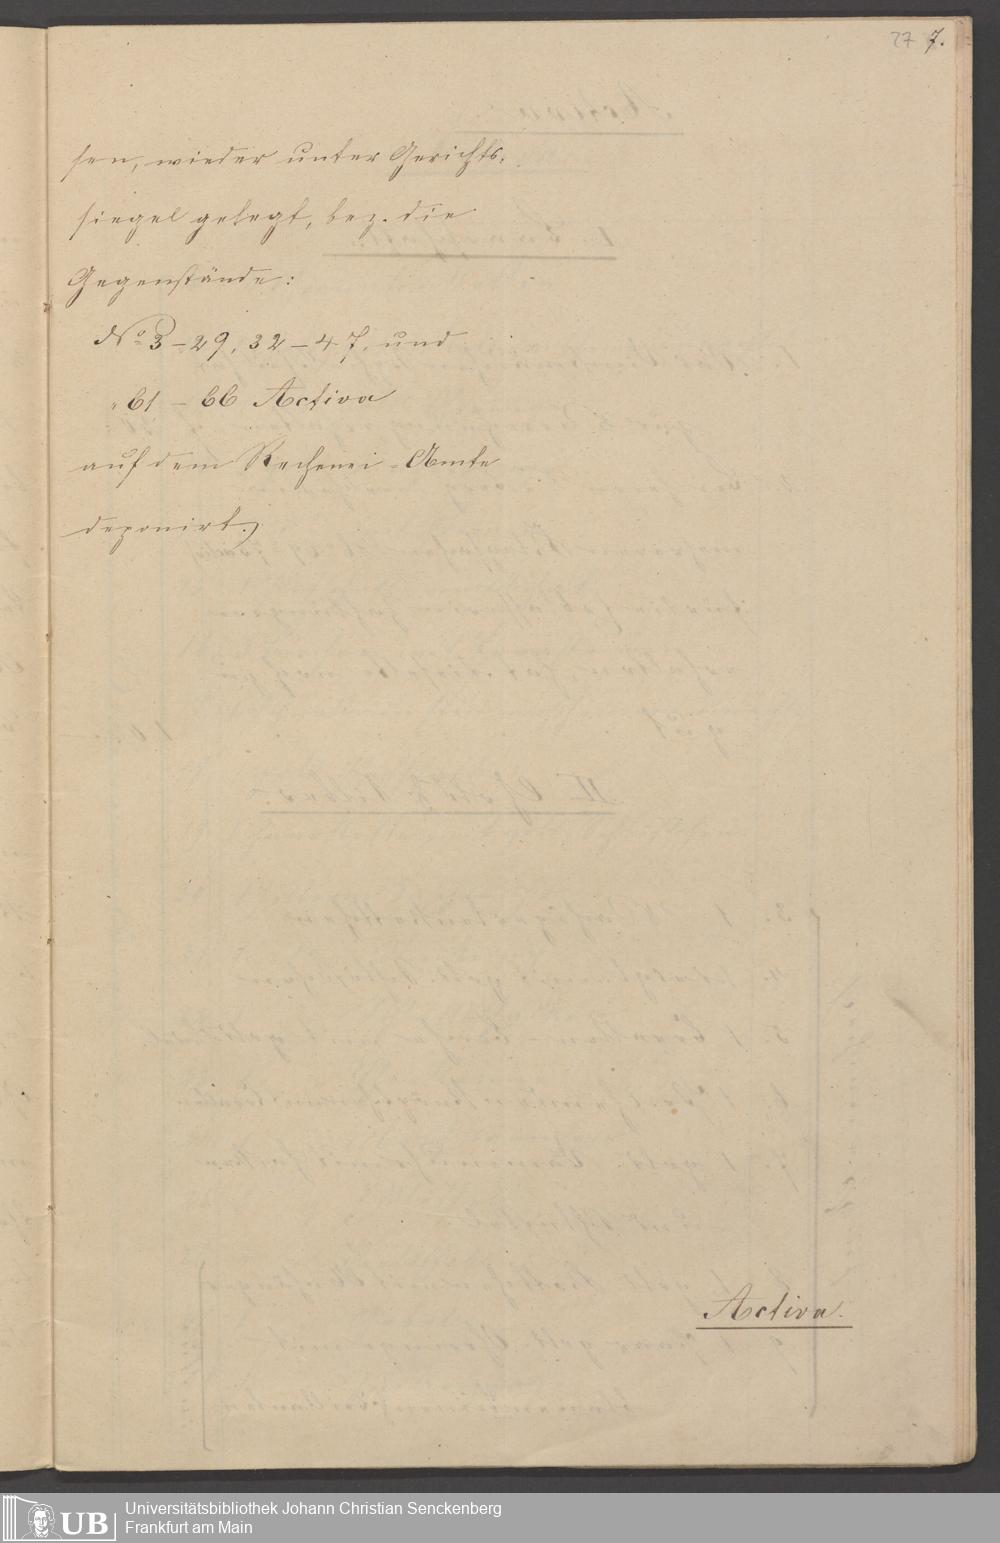 27 7.
sen, wieder unter Gerichts-
siegel gelegt, bez. die
Gegenstände:
No 3 – 29, 32 – 47, und
„ 61 – 66 Activa
auf dem Rechenei-Amte
deponirt.)
Activa.
UB
Universitätsbibliothek Johann Christian Senckenberg
Frankfurt am Main